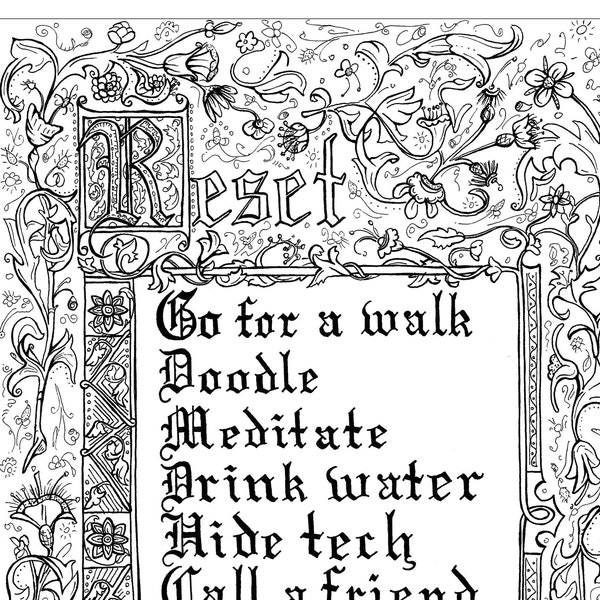 Reset
Go for a walk
Doodle
Meditate
Drink water
Hide tech
Call a friend